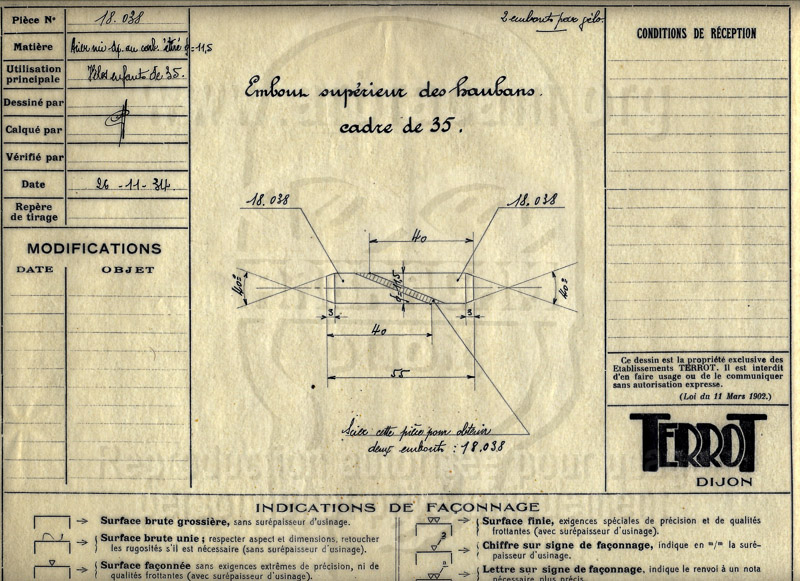 Pièce N° 18.038
Matière Acier mi-dp. au carb. étiré φ=11,5
Utilisation principale Vélos enfants de 35.
Dessiné par
Calqué par
Vérifié par
Date 26-11-34
Repère de tirage
MODIFICATIONS
DATE OBJET
2 embouts par vélo.
Embout supérieur des haubans.
cadre de 35.
18.038
18.038
40
40°
φ=11,5
40°
3
3
40
55
Scier cette pièce pour obtenir
deux embouts : 18.038
CONDITIONS DE RÉCEPTION
Ce dessin est la propriété exclusive des
Etablissements TERROT. Il est interdit
d'en faire usage ou de le communiquer
sans autorisation expresse.
(Loi du 11 Mars 1902.)
TERROT
DIJON
INDICATIONS DE FAÇONNAGE
Surface brute grossière, sans surépaisseur d'usinage.
Surface brute unie ; respecter aspect et dimensions, retoucher
les rugosités s'il est nécessaire (sans surépaisseur d'usinage).
Surface façonnée sans exigences extrêmes de précision, ni de
qualités frottantes (avec surépaisseur d'usinage).
Surface finie, exigences spéciales de précision et de qualités
frottantes (avec surépaisseur d'usinage).
Chiffre sur signe de façonnage, indique en m/m la suré-
paisseur d'usinage.
Lettre sur signe de façonnage, indique le renvoi à un nota
nécessaire plus précis.